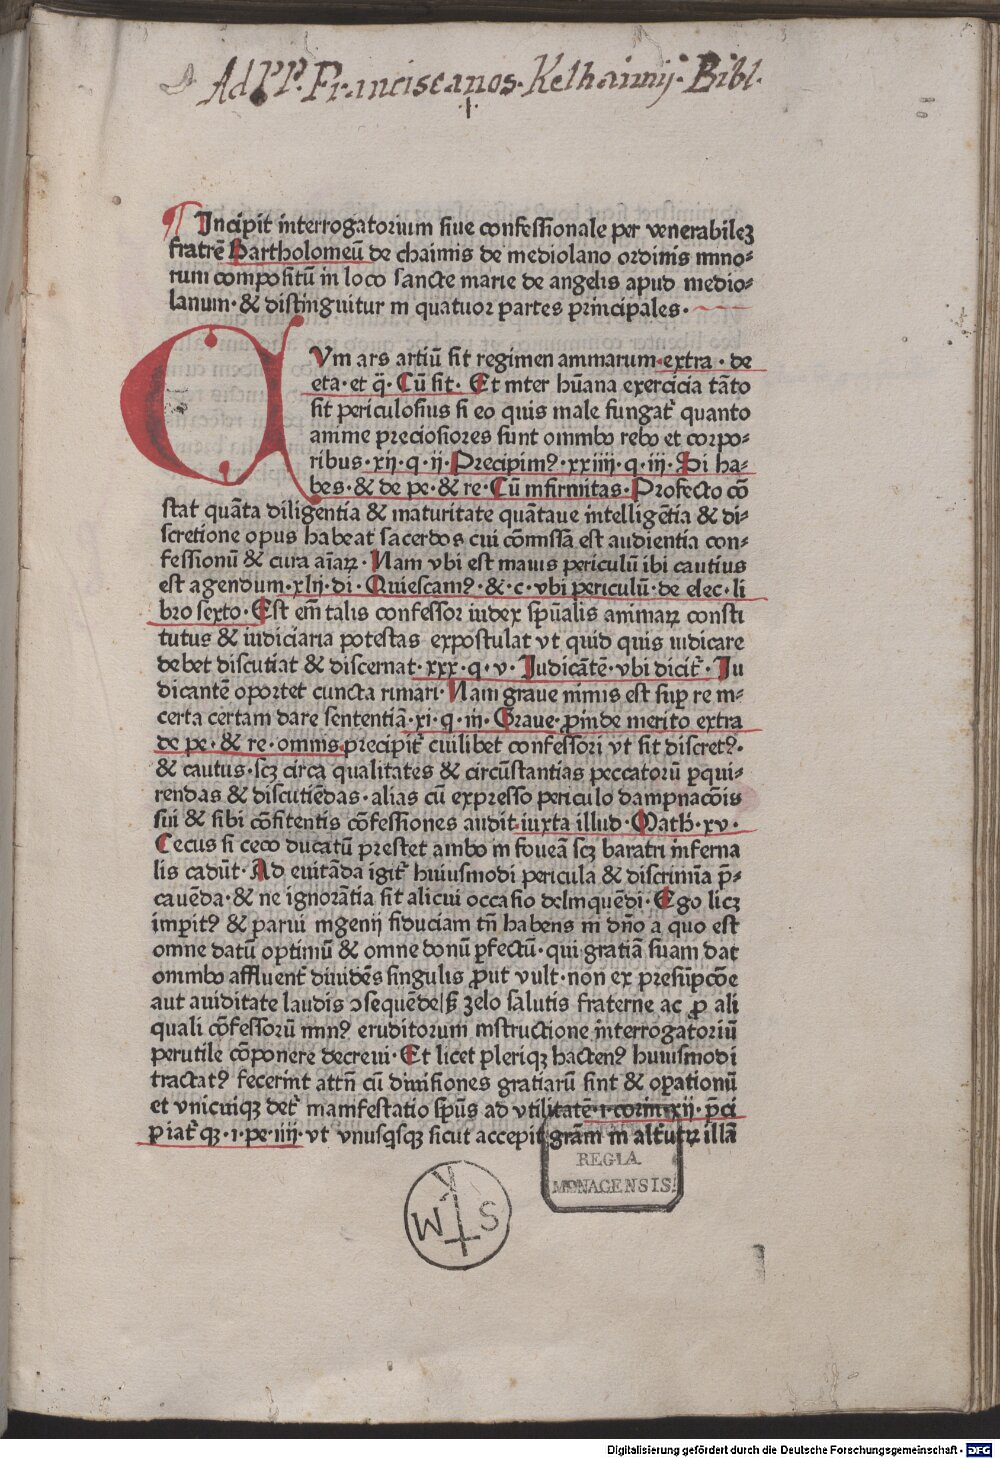 Ad PP. Franciscanos. Kelhaimij. Bibl.
¶ Incipit interrogatorium siue confessionale per venerabileꝫ
fratrē Bartholomeū de chaimis de mediolano ordinis mino⸗
rum compositū in loco sancte marie de angelis apud medio⸗
lanum· & distinguitur in quatuor partes principales·
CVm ars artiū sit regimen animarum·extra· de
eta·et q̄· Cū sit· Et inter hūana exercicia tāto
sit periculosius si eo quis male fungat᷑ quanto
anime preciosiores sunt omnibꝰ rebꝰ et corpo⸗
ribus·xij·q·ij·Precipimꝰ·xxiiij·q·iij·Si ha⸗
bes·& de pe·& re·Cū infirmitas·Profecto cō
stat quāta diligentia & maturitate quātaue intelligētia & di⸗
scretione opus habeat sacerdos cui cōmissa est audientia con⸗
fessionū & cura aīaꝝ· Nam vbi est maius periculū ibi cautius
est agendum·xlij·di· Quiescamꝰ·&·c·vbi periculū·de elec·li
bro sexto·Est em̄ talis confessor iudex spūalis animaꝝ consti
tutus & iudiciaria potestas expostulat vt quid quis iudicare
debet discutiat & discernat·xxx·q·v· Iudicātē·vbi dicit᷑·Iu
dicantē oportet cuncta rimari·Nam graue nimis est suꝑ re in⸗
certa certam dare sententiā·xi·q·iij· Graue·ꝓinde merito extra
de pe·& re·omnis·precipit᷑ cuilibet confessori vt sit discretꝰ·
& cautus·scꝫ circa qualitates & circūstantias peccatorū ꝑqui⸗
rendas & discutiēdas·alias cū expresso periculo dampnacōis
sui & sibi cōfitentis cōfessiones audit·iuxta illud·Math·xv·
Cecus si ceco ducatū prestet ambo in foueā scꝫ baratri inferna
lis cadūt·Ad euitāda igit᷑ huiusmodi pericula & discrimīa p̄⸗
cauēda·& ne ignorātia sit alicui occasio delinquēdi·Ego licꝫ
imꝑitꝰ & parui ingenij fiduciam tn̄ habens in dn̄o a quo est
omne datū optimū & omne donū ꝑfectū·qui gratiā suam dat
omnibꝰ affluent᷑ diuidēs singulis ꝓut vult·non ex presūpcōe
aut auiditate laudis ꝯsequēde/sꝫ zelo salutis fraterne ac ꝓ ali
quali cōfessorū minꝰ eruditorum instructione interrogatoriū
perutile cōponere decreui·Et licet pleriqꝫ hactenꝰ huiusmodi
tractatꝰ fecerint attn̄ cū diuisiones gratiarū sint & oꝑationū
et vnicuiqꝫ det᷑ manifestatio spūs ad vtilitatē·i·corin·xij· p̄ci
piat᷑qꝫ·i·pe·iiij·vt vnusqsqꝫ sicut accepit grām in alt᷑utꝝ illā
REGIA
MONACENSIS.
V
M
S
Digitalisierung gefördert durch die Deutsche Forschungsgemeinschaft - DFG